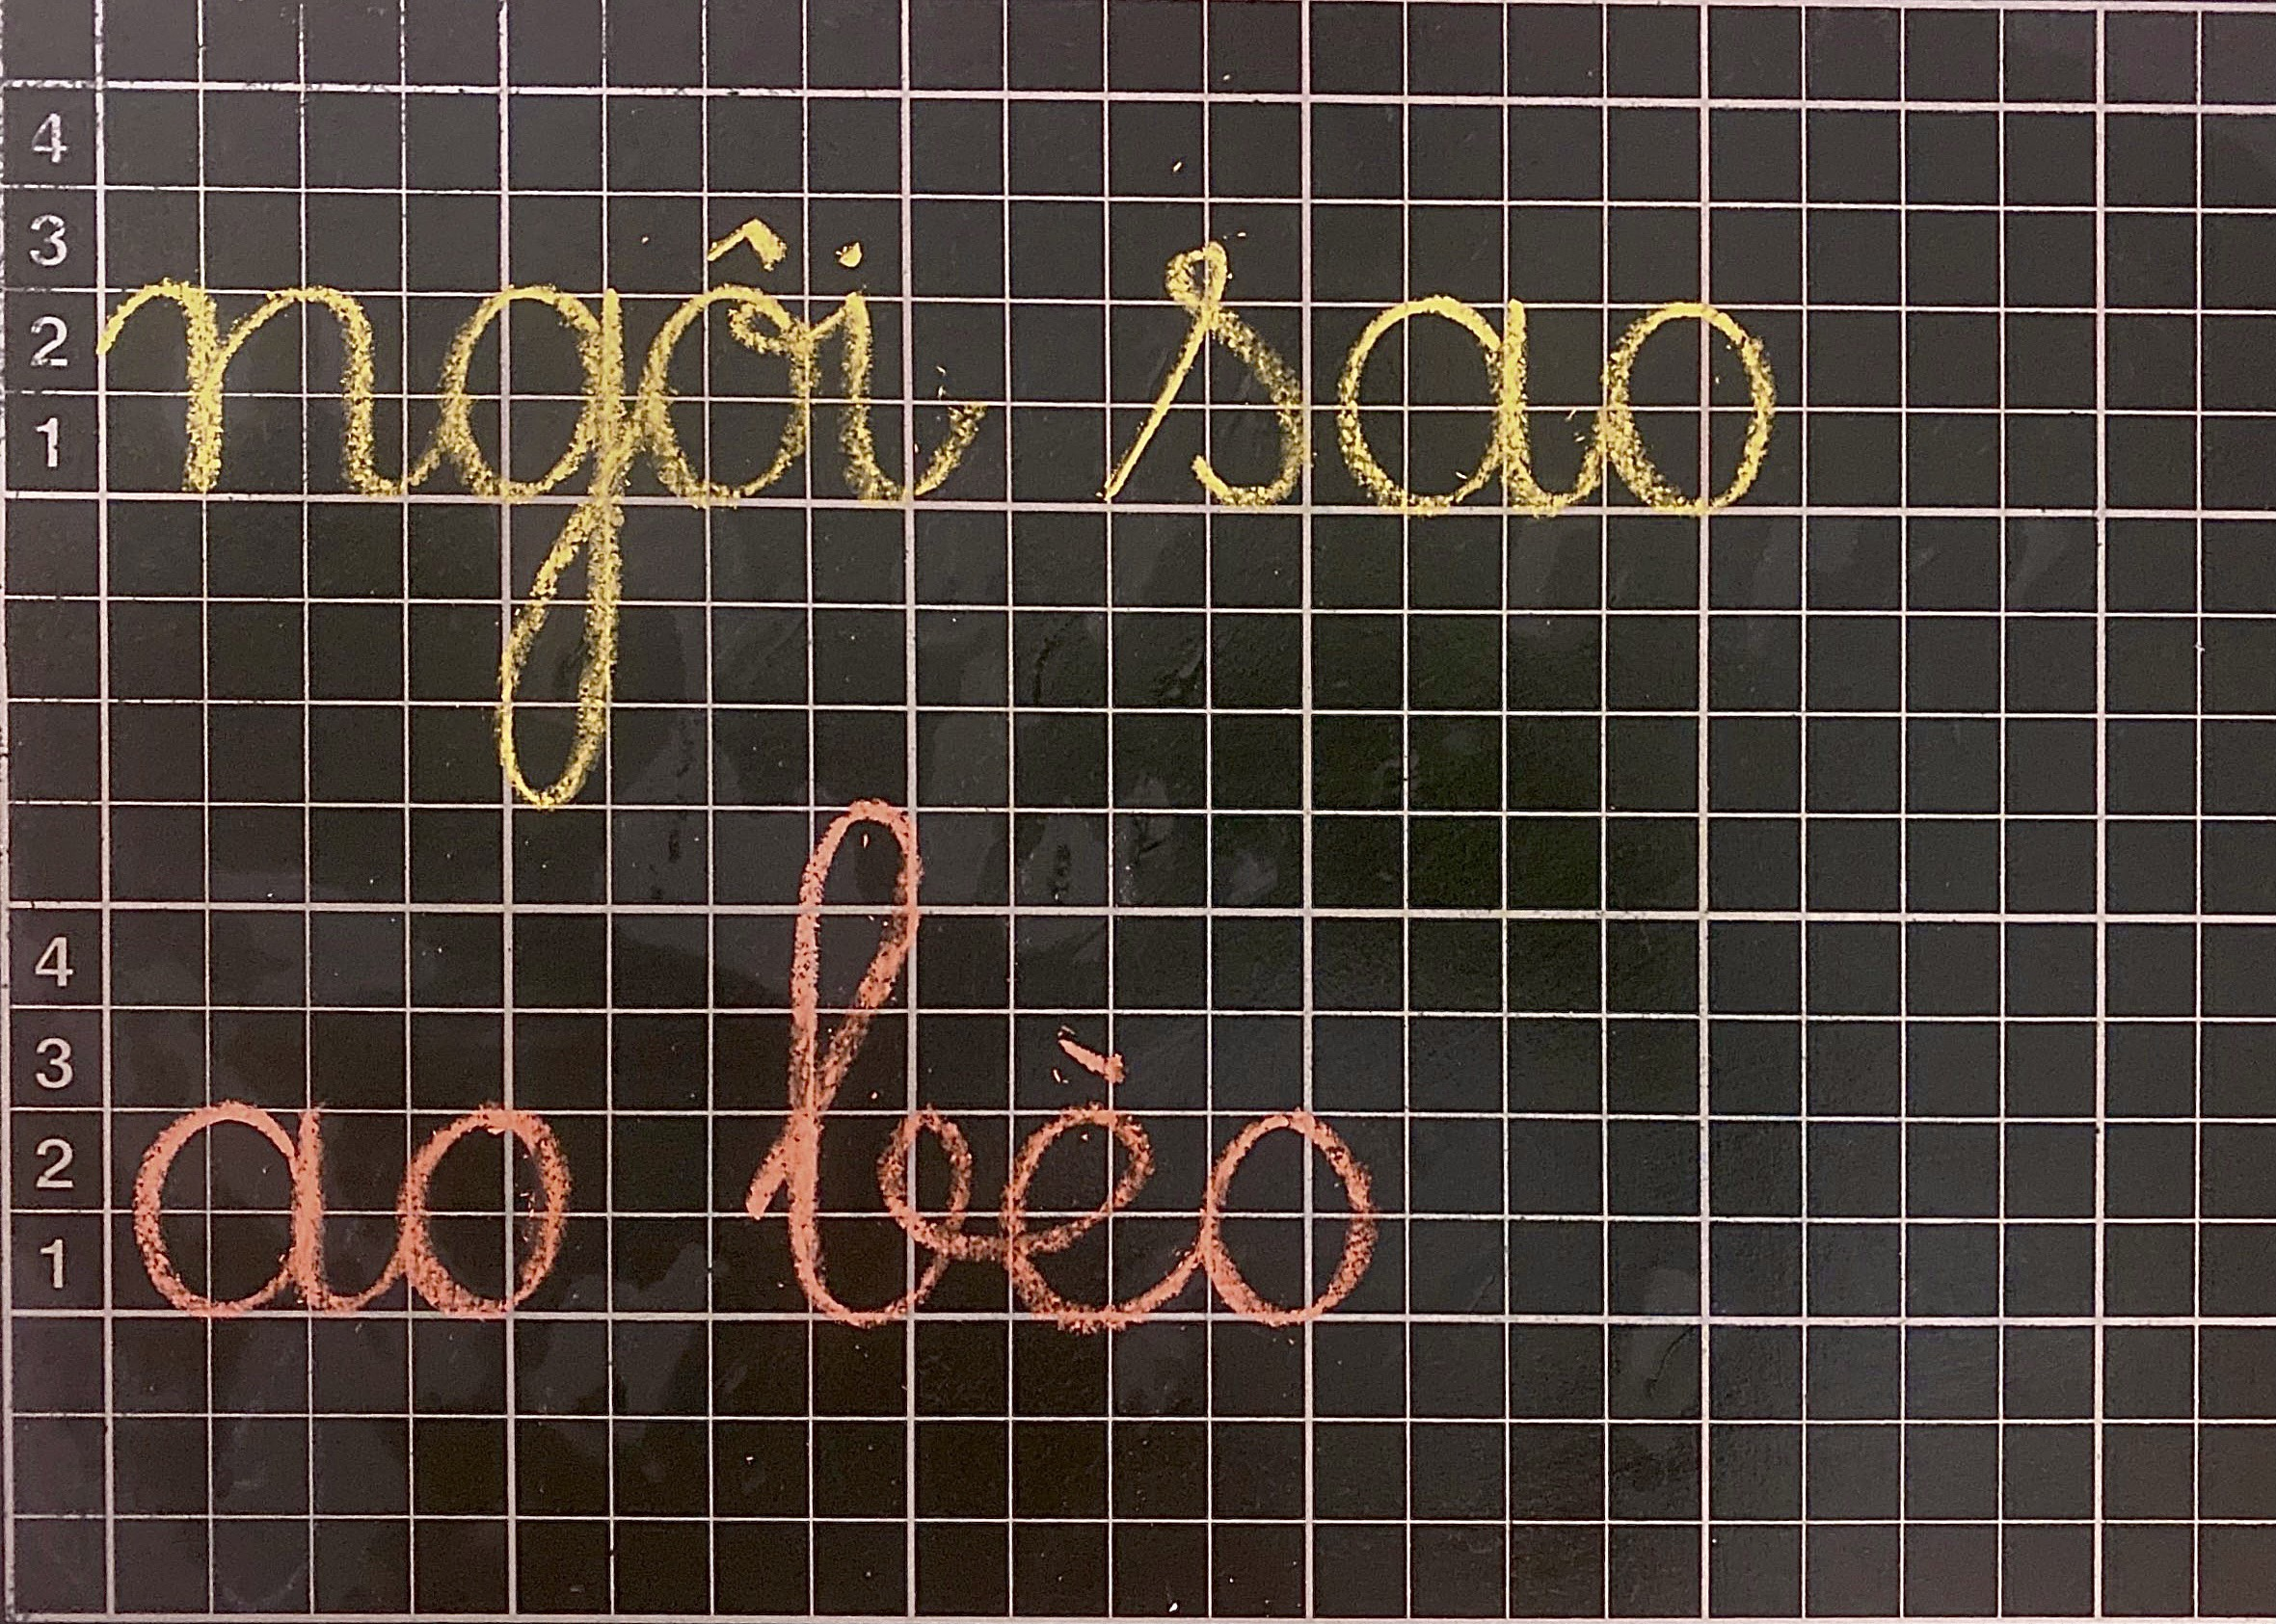 4
3
2
1
ngôi sao
4
3
2
1
ao bèo